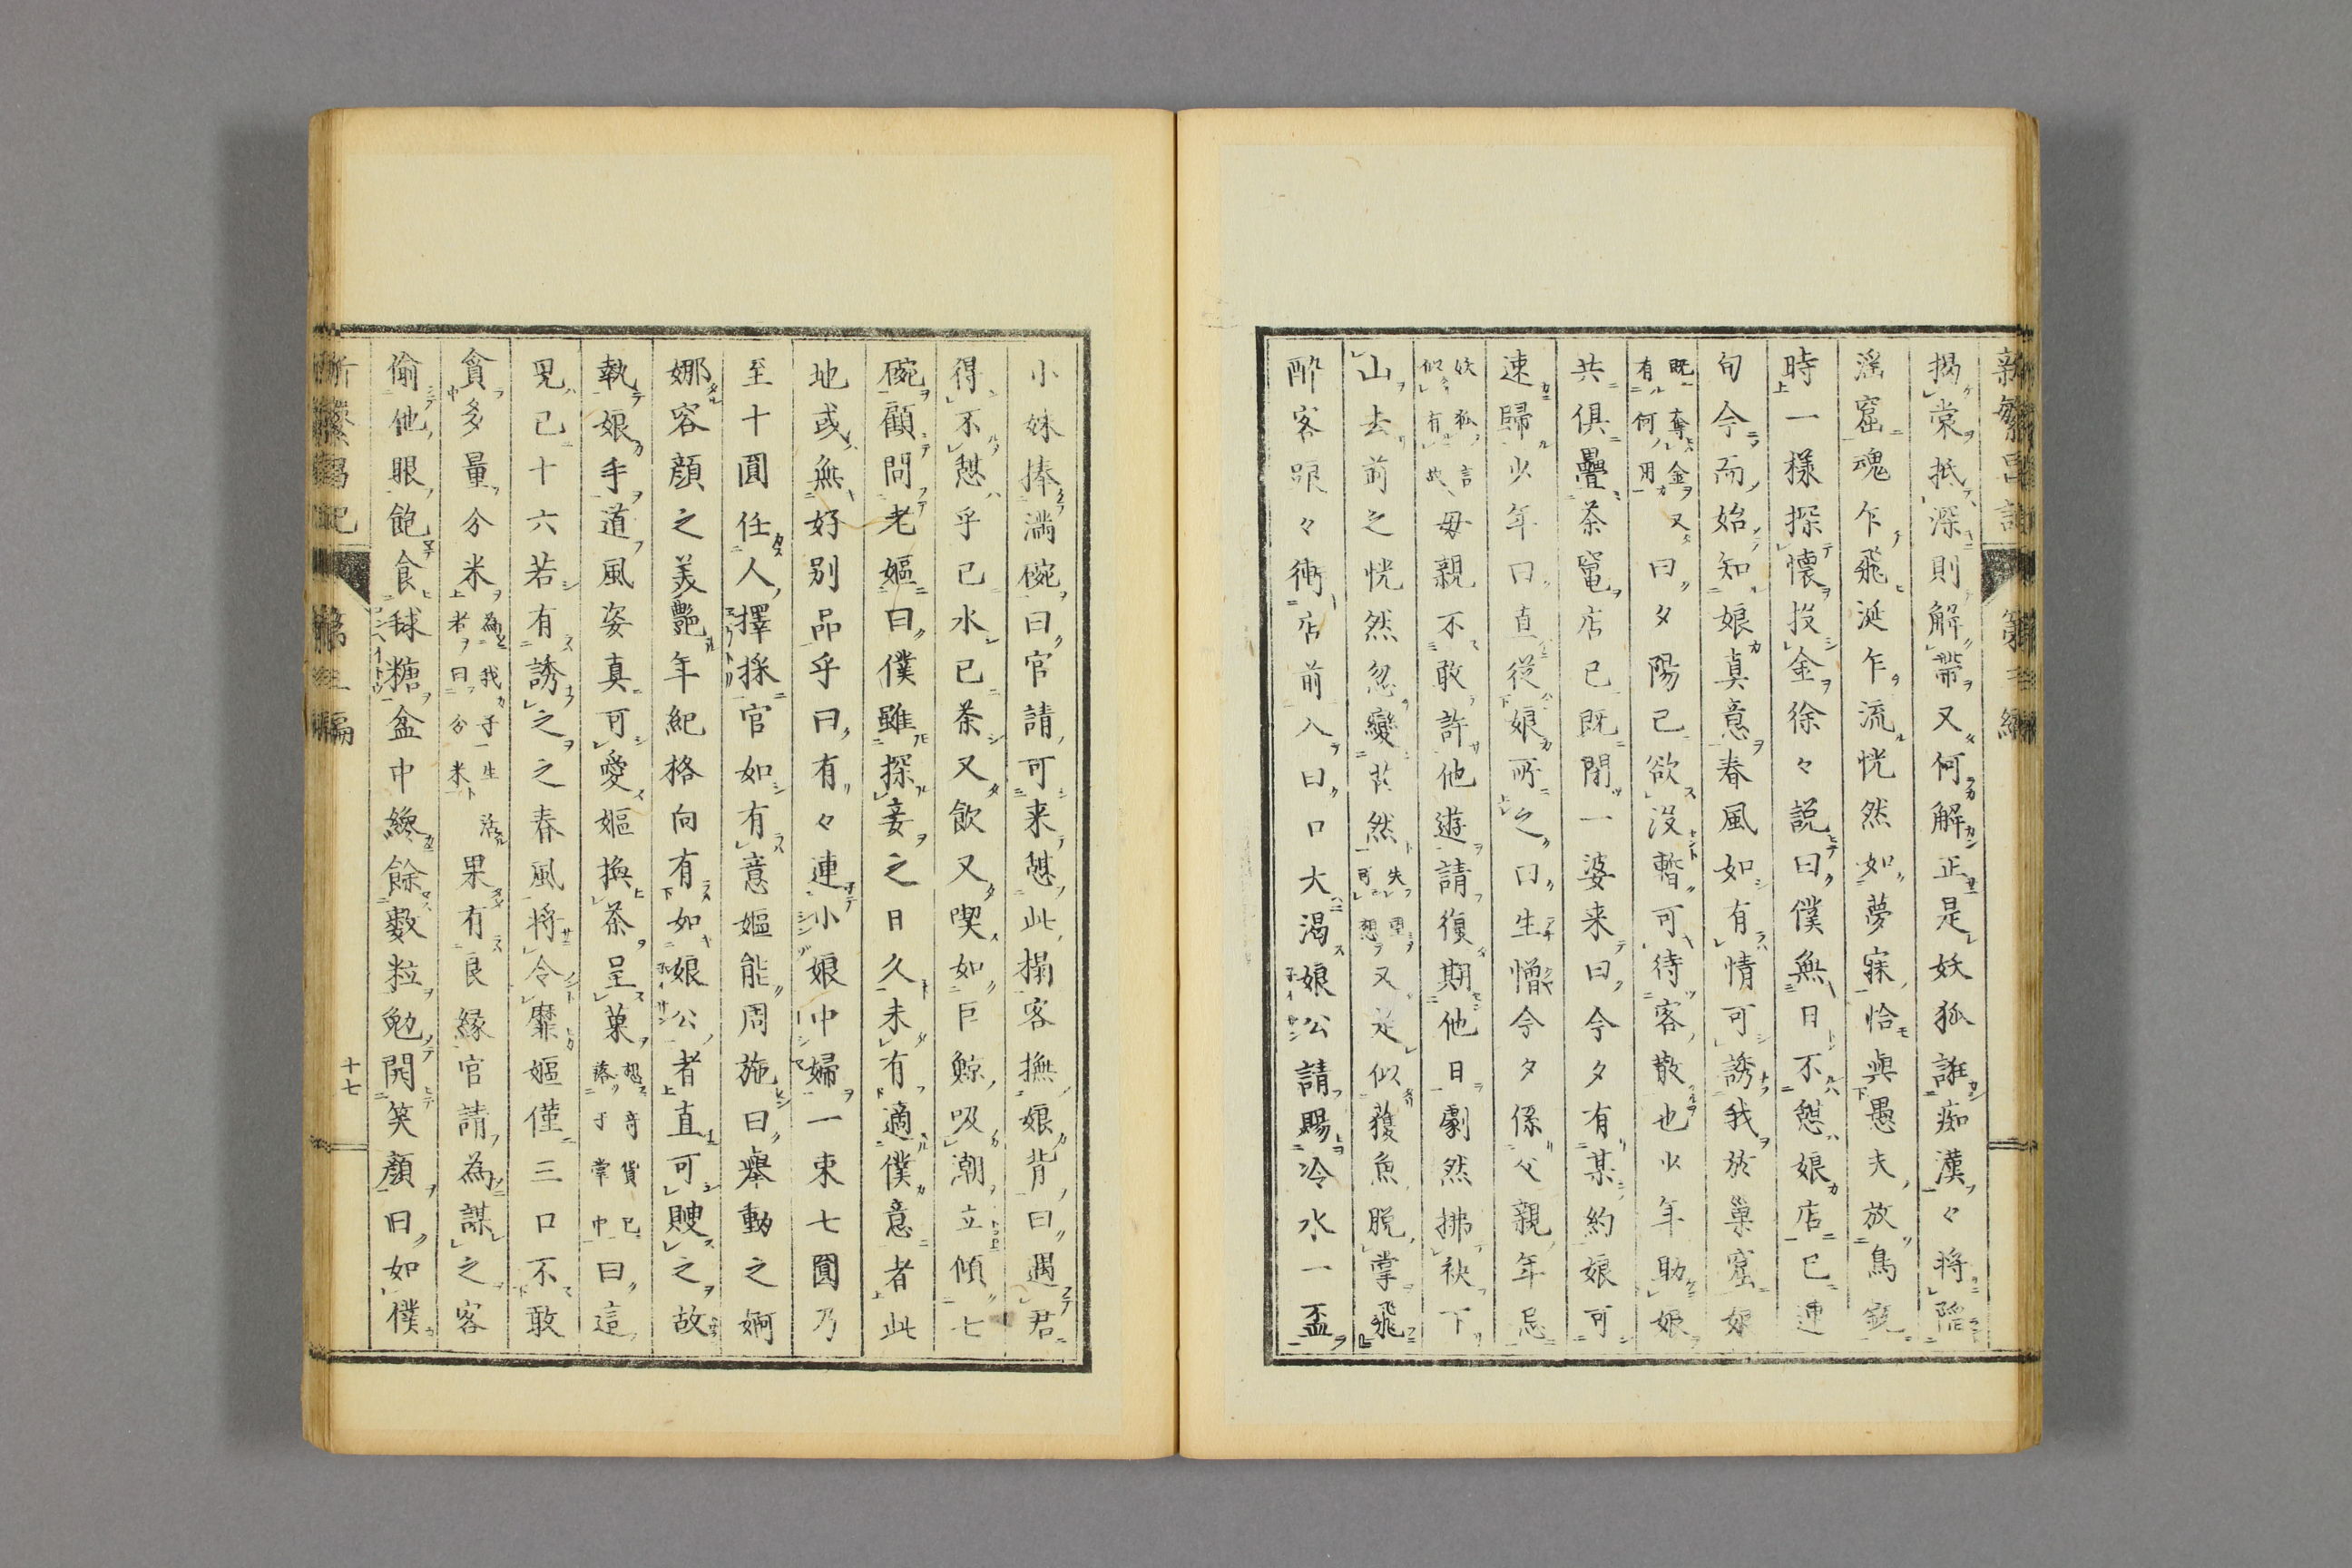 掲裳抵深則解帯又何解正是妖狐誑痴漢々将陥
淫窟魂乍飛涎乍流恍然如夢寐恰與愚夫放鳥銃
時一様探懐投金徐々説曰僕無日不憇娘店已連
旬今而始知娘真意春風如有情可誘我於巣窟娘
既奪金又有何用曰夕陽已欲没暫可待客散也少年助娘
共倶疊茶竃店已既閉一婆来曰今夕有某約娘可
速歸少年曰直従娘所之曰生憎今夕係父親年忌
妖狐言似有故毋親不敢許他遊請復期他日劇然拂袂下
山去前之恍然忽變茫然失望可想又是似獲魚脱掌飛
酔客踉々衝店前入曰口大渇娘公請賜冷水一盃
小妹捧満碗曰官請可来憇此榻客撫娘背曰遇君
得不憇乎已水已茶又飲又喫如巨鯨吸潮立傾七
碗顧問老嫗曰僕雖探妾之日久未有適僕意者此
地或無好別品乎曰有々連小娘中婦一束七圓乃
至十圓任人擇採官如有意嫗能周施曰擧動之婀
娜容顔之美艷年紀格向有如娘公者直可賋之故
執娘手道風姿真可愛嫗換茶呈菓想奇貨已落于掌中曰這
児已十六若有誘之之春風将令靡嫗僅三口不敢
貪多量分米為我子一生活者曰分米果有良縁官請為謀之客
偸他眼飽食毬糖盆中纔餘数粒勉開笑顔曰如僕
十七